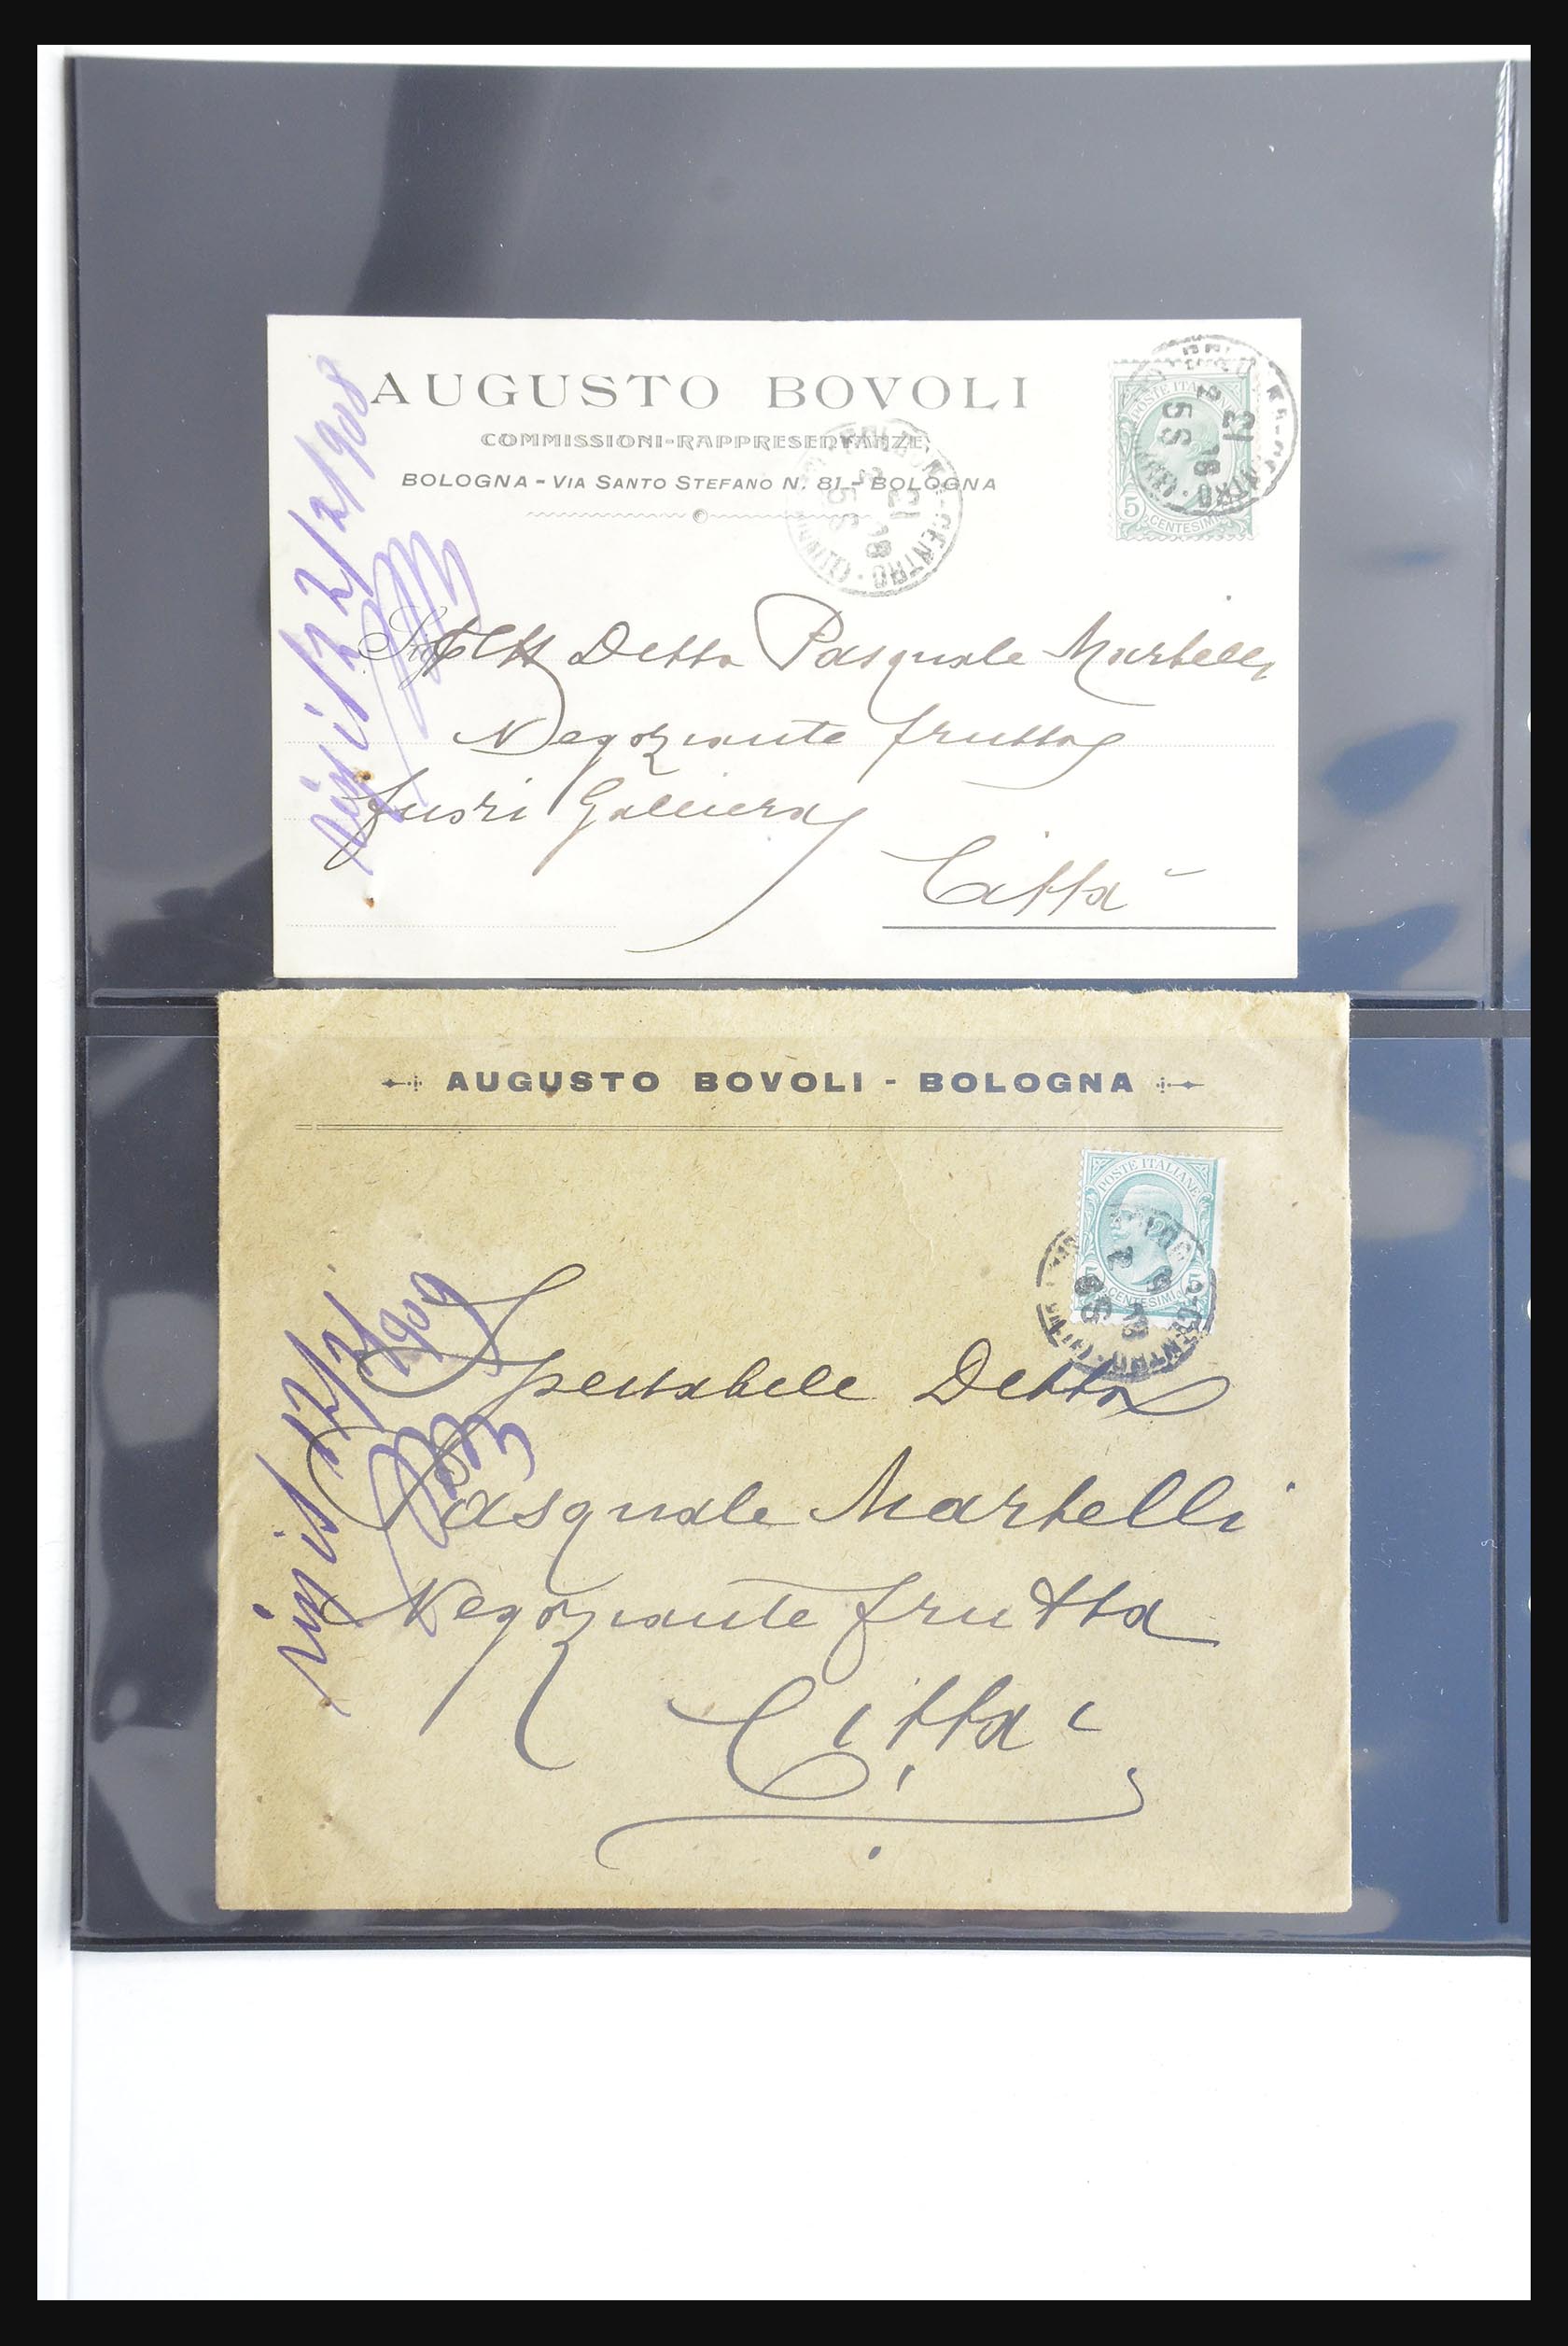 AUGUSTO BOVOLI
COMMISSIONI-RAPPRESENTANZE
BOLOGNA - VIA SANTO STEFANO N. 81 - BOLOGNA
POSTE ITALIANE
5
CENTESIMI
21 2 08
5 S
CENTRO
21 2 08
5 S
CENTRO
22/2/1908
Ditta Pasquale Martelli
Negoziante frutta
fuori Galliera
Città
AUGUSTO BOVOLI - BOLOGNA
POSTE ITALIANE
5 5
CENTESIMI
CENTRO
12/2/1909
Spettabile Ditta
Pasquale Martelli
Negoziante frutta
Città